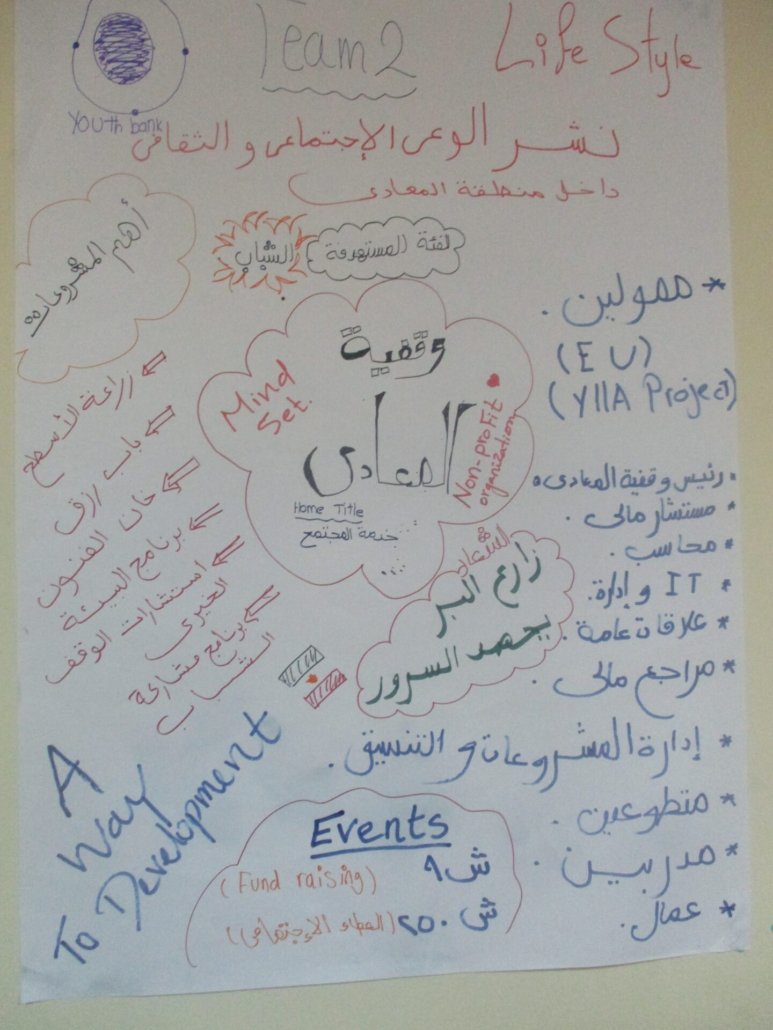 Youth bank
Team 2
Life Style
نشر الوعى الإجتماعى و الثقافى
داخل منطقة المعادى
لفئة المستهدفة
الشباب
أهم المشروعات
زراعة الأسطح
باب رزق
خان الفنون
برنامج البيئة
استشارات الوقف
الخيرى
برنامج مشاركة
الشباب
وقفية
المعادى
Mind
Set.
Non-profit
organization
Home Title
خدمة المجتمع
....
زارع البر
يحصد السرور
* ممولين .
(EU)
(YIIA Project)
رئيس وقفية المعادى
* مستشار مالى .
* محاسب .
* IT و إدارة .
* علاقات عامة .
* مراجع مالى .
* إدارة المشروعات و التنسيق .
* متطوعين .
* مدربين .
* عمال .
A
Way
To Development
Events
(Fund raising)
(العطاء الإجتماعى)